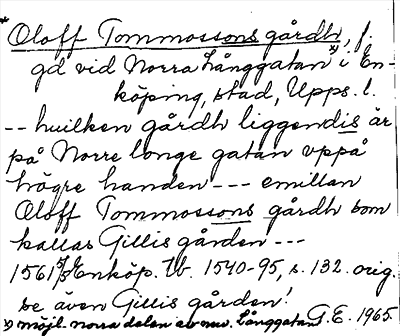 *Oloff Tommossons gårdh, f.
gd vid Norra Långgatan x) i En-
köping, stad, Upps. l.
-- huilken gårdh liggendis är
på Norre longe gatan vppå
högre handen --- emillan
Oloff Tommossons gårdh som
kallas Gillis gården ---
1561 5/5 Enköp. Tb. 1540-95, s. 132. orig.
se även Gillis gården!
x) möjl. norra delen av nuv. Långgatan G.E. 1965.